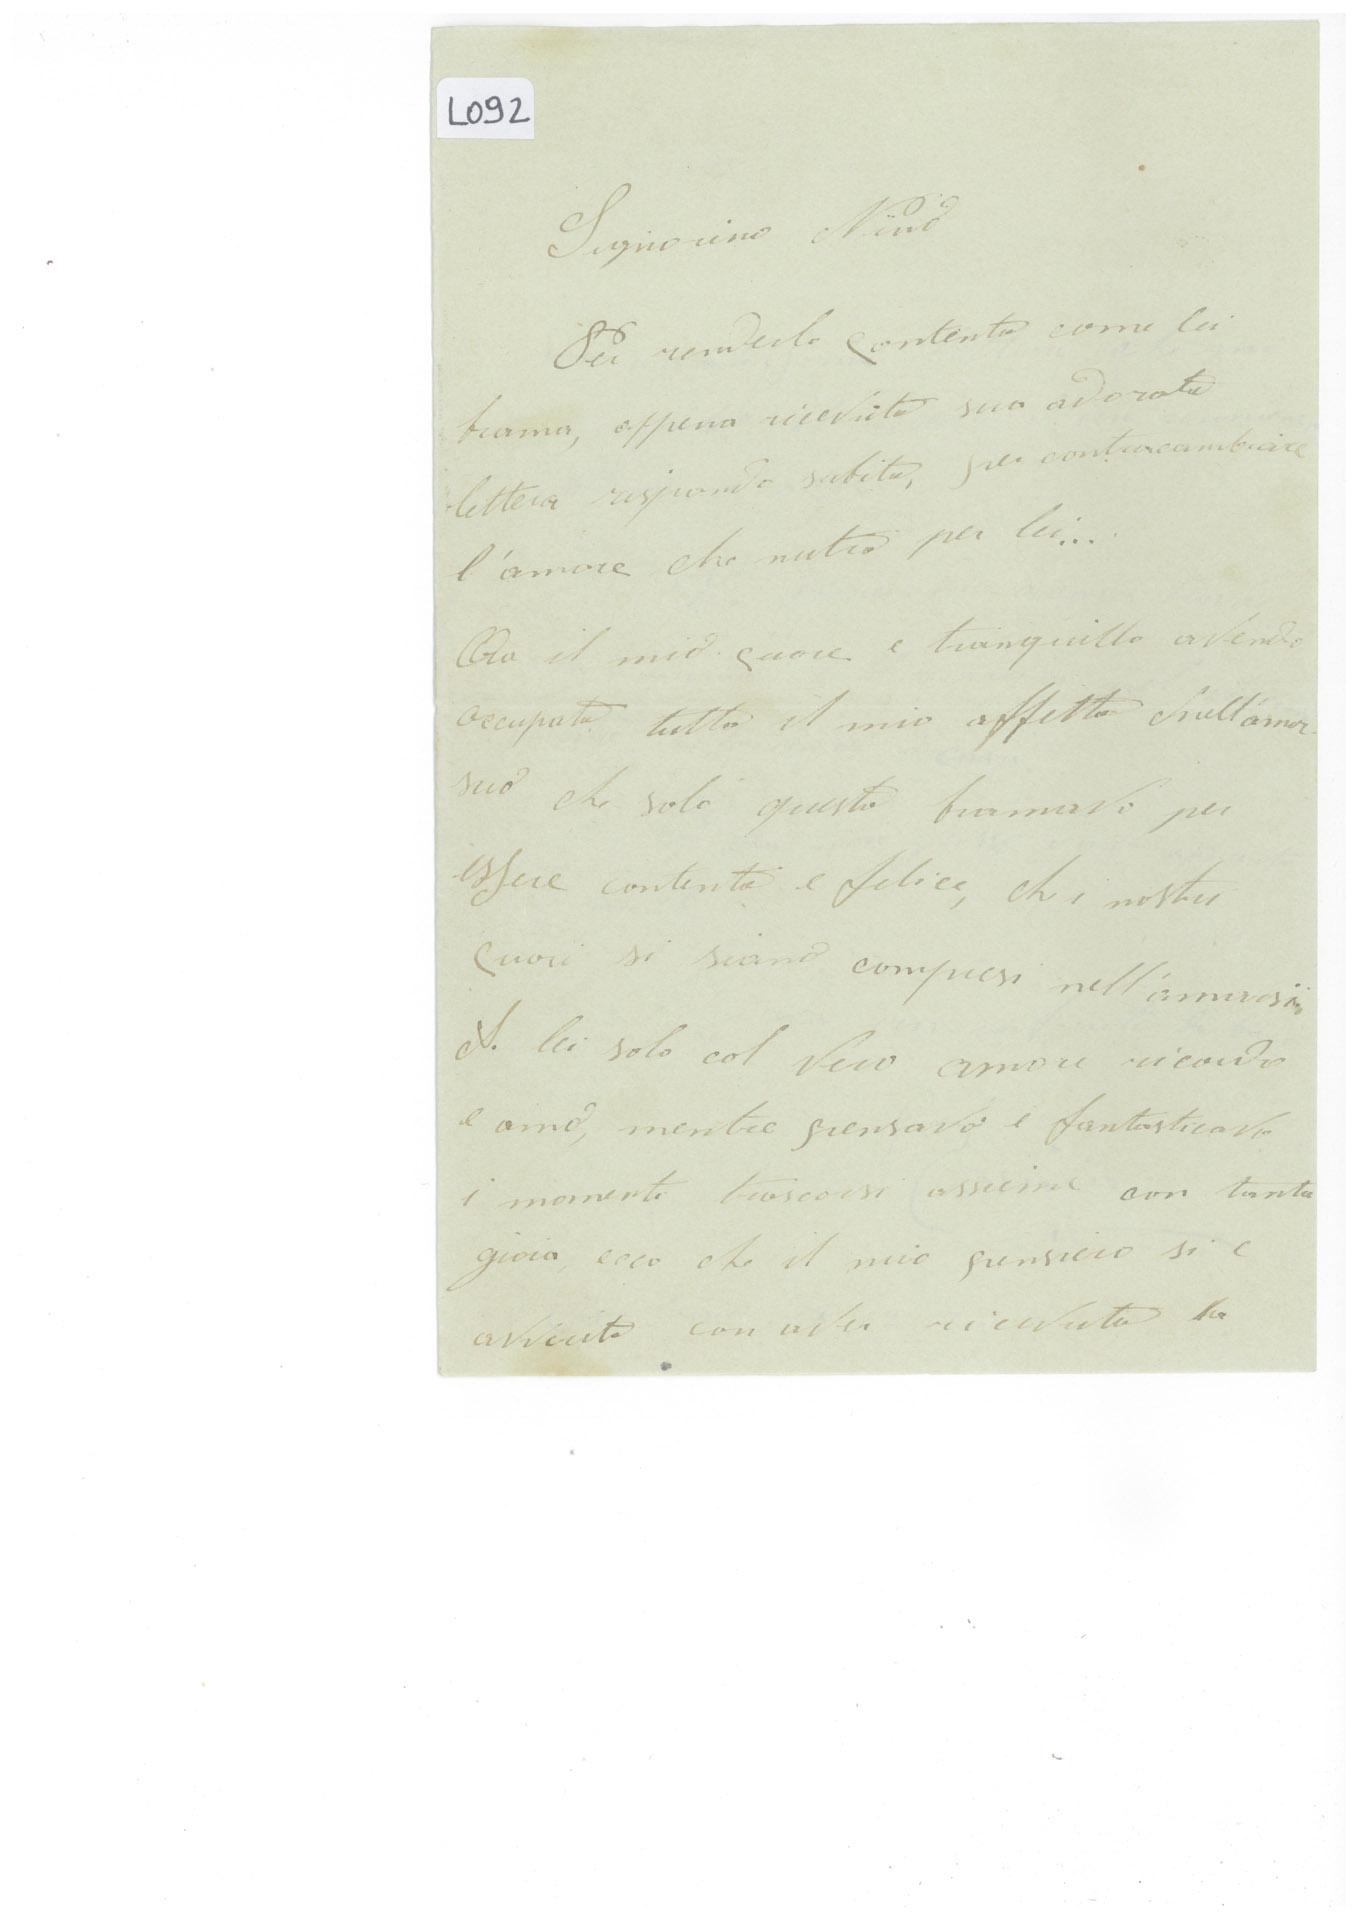 L092
Signorino Nino
Per renderlo contento come lei
brama, appena ricevuta sua adorata
lettera rispondo subito, per contracambiare
l'amore che nutro per lei...
Ora il mio quore e tranquillo avendo
occupato tutto il mio affetto nell'amor
suo che solo questo bramavo per
essere contenta e felice, che i nostri
quori si siano compresi nell'amarsi
A lei solo col vero amore ricordo
e amo, mentre pensavo e fantasticavo
i momenti trascorsi assieme con tanta
gioia, ecco che il mio pensiero si e
avverato con aver ricevuta la